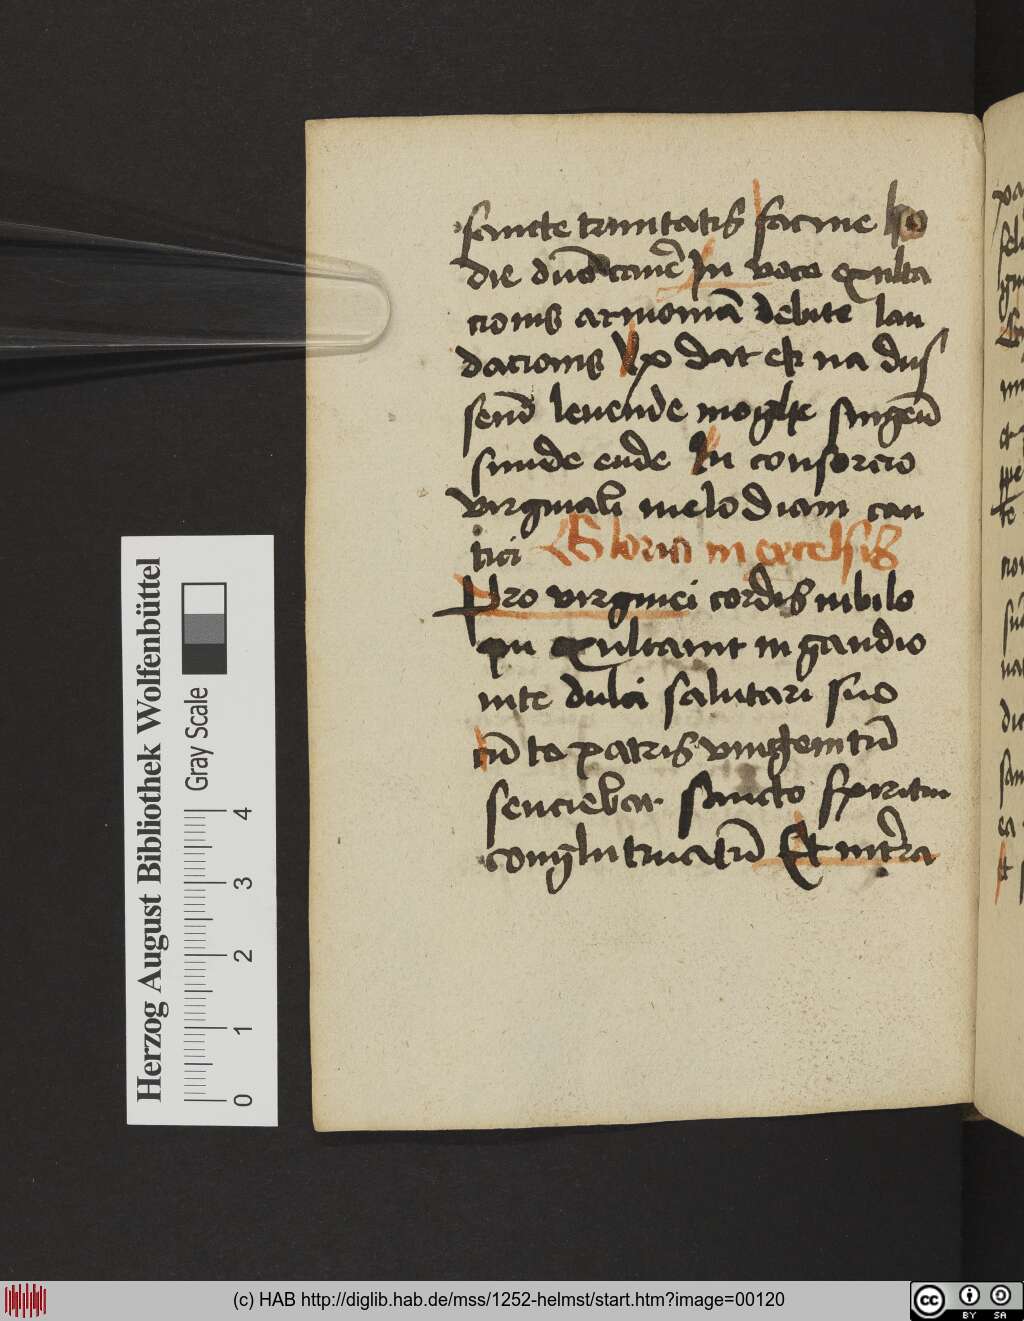 sancte trinitatis facine ho
die duō cciuē In voco exulta
cionis armoniā debite lau
dacionis Up dat ek na dus
send leuende moghe singeū
sunde ende In consorcio
virginali melodiam can
tici Gloria in excelsis
Pro virginei cordis iubilo
pu exultauit in gaudio
inte dulci salutari suo
cū to patris vnigenitū
senciebar sancto spiritui
conglutinatū Et in t̄ra
Herzog August Bibliothek Wolfenbüttel
Gray Scale
0 1 2 3 4
(c) HAB http://diglib.hab.de/mss/1252-helmst/start.htm?image=00120
cc BY SA